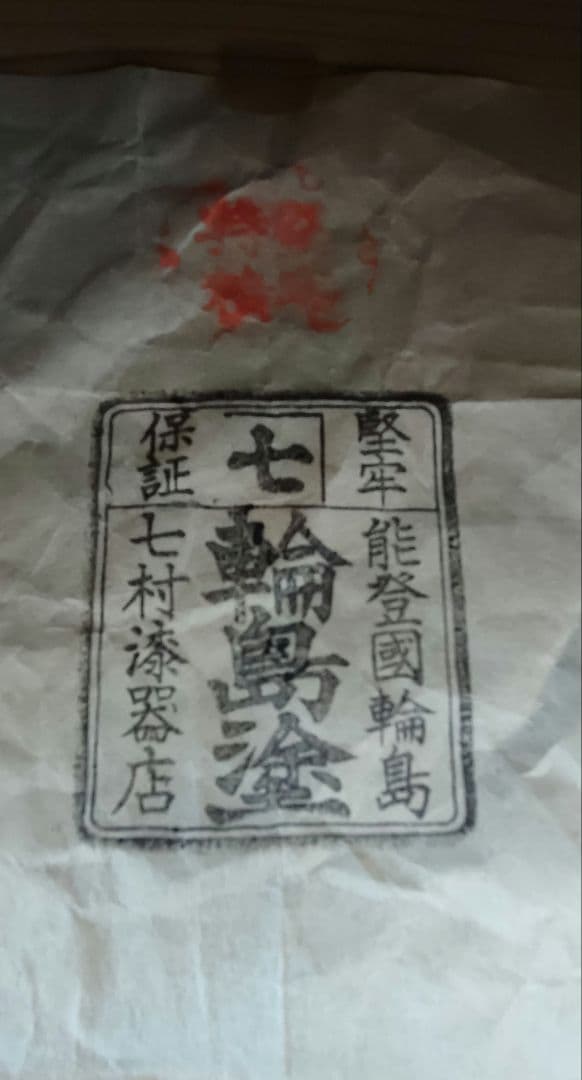 堅牢
七
保証
能登國輪島
輪島塗
七村漆器店